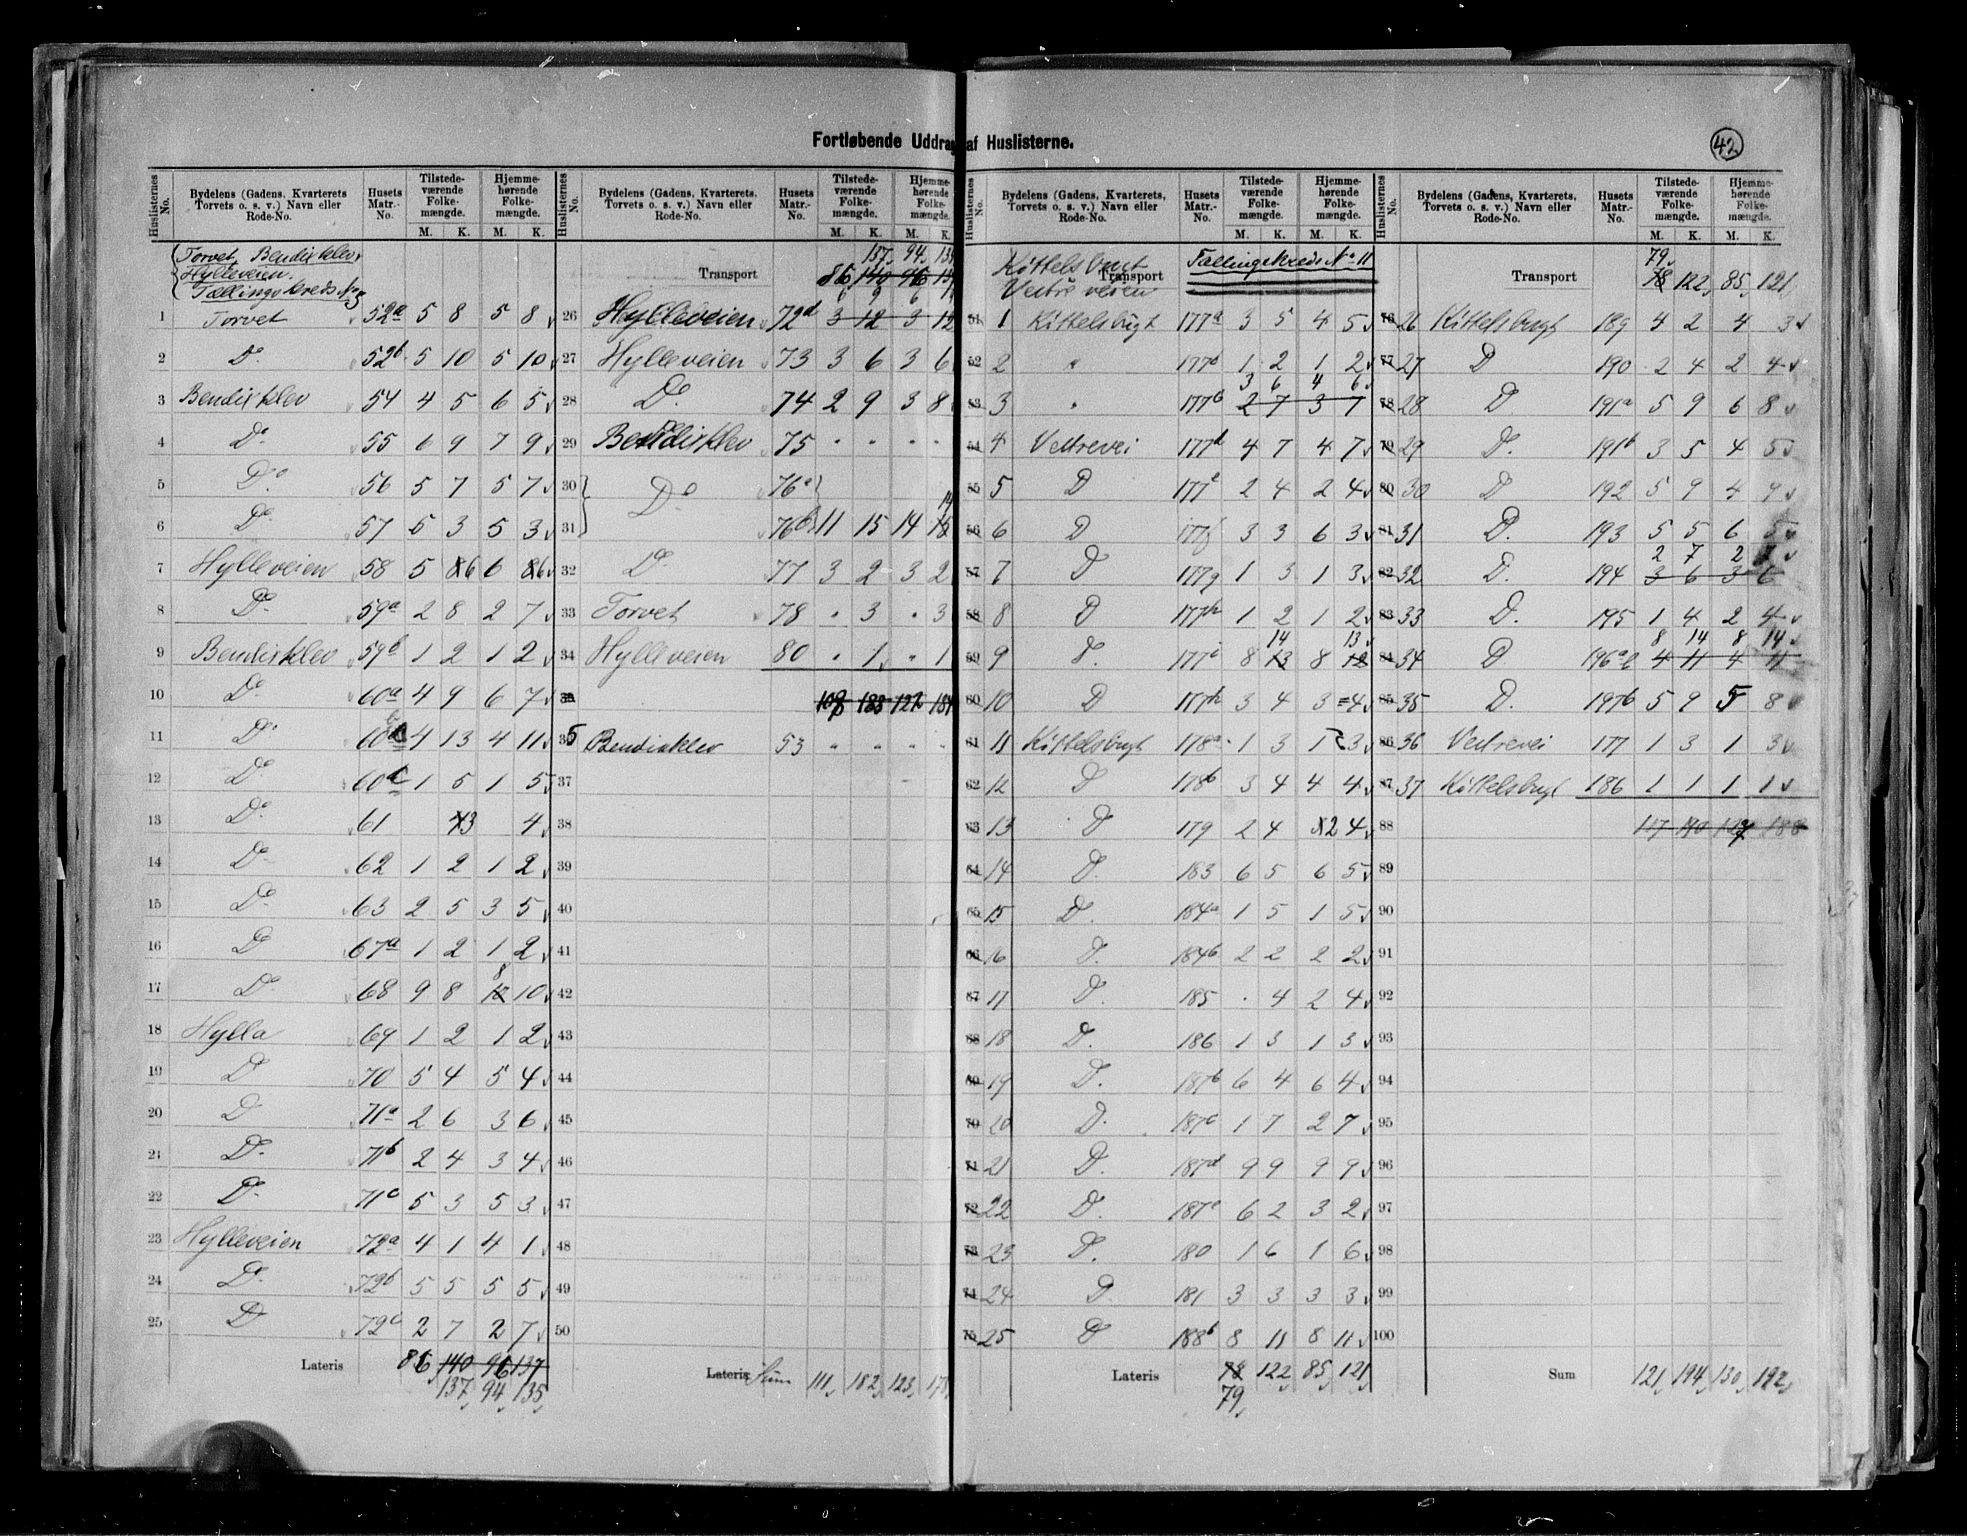 Fortløbende Uddrag af Huslisterne.
42
Huslisternes No. | Bydelens (Gadens, Kvarterets Torvets o. s. v.) Navn eller Rode-No. | Husets Matr.-No. | Tilstedeværende Folkemængde. M. K. | Hjemmehørende Folkemængde. M. K.
Torvet, Bendixklev,
Hylleveien.
Tællingskreds No
1 Torvet 52a 5 8 5 8
2 Do 52b 5 10 5 10
3 Bendixklev 54 4 5 6 5
4 Do 55 6 9 7 9
5 Do 56 5 7 5 7
6 Do 57 5 3 5 3
7 Hylleveien 58 5 6 6 6
8 Do 59a 2 8 2 7
9 Bendixklev 59b 1 2 1 2
10 Do 60a 4 9 6 7
11 Do 60b 4 13 4 11
12 Do 60c 1 5 1 5
13 Do 61 3 4
14 Do 62 1 2 1 2
15 Do 63 2 5 3 5
16 Do 67a 1 2 1 2
17 Do 68 9 8 8 10
18 Hylla 69 1 2 1 2
19 Do 70 5 4 5 4
20 Do 71a 2 6 3 6
21 Do 71b 2 4 3 4
22 Do 71c 5 3 5 3
23 Hylleveien 72a 4 1 4 1
24 Do 72b 5 5 5 5
25 Do 72c 2 7 2 7
Lateris 86 140 96 137
137 94 135
Huslisternes No. | Bydelens (Gadens, Kvarterets, Torvets o. s. v.) Navn eller Rode-No. | Husets Matr.-No. | Tilstedeværende Folkemængde. M. K. | Hjemmehørende Folkemængde. M. K.
137 94
Transport 86 140 96
6 9 6
26 Hylleveien 72d 3 12 3 12
27 Hylleveien 73 3 6 3 6
28 Do 74 2 9 3 8
29 Bendixklev 75 " " " "
30 Do 76a
14
31 76b 11 15 14 15
32 Do 77 3 2 3 2
33 Torvet 78 " 3 " 3
34 Hylleveien 80 " 1 " 1
183
35 Bendixklev 53 " " " "
37
38
39
40
41
42
43
44
45
46
47
48
49
50
Lateris Sum 111 182 123
Huslisternes No. | Bydelens (Gadens, Kvarterets, Torvets o. s. v.) Navn eller Rode-No. | Husets Matr.-No. | Tilstedeværende Folkemængde. M. K. | Hjemmehørende Folkemængde. M. K.
Kittelsbugt
Vestre veien
Transport
Tællingskreds No 11
51 1 Kittelsbugt 177a 3 5 4 5
52 2 " 177b 1 2 1 2
3 6 4 6
53 3 " 177b 2 7 3 7
54 4 Vestrevei 177d 4 7 4 7
55 5 D 177e 2 4 2 4
56 6 D 177f 3 3 6 3
57 7 D 177g 1 3 1 3
58 8 D 177h 1 2 1 2
14 13
59 9 D. 177i 8 13 8 12
60 10 D 3 4 3 4
61 11 Kittelsbugt 178a 1 3 1 3
62 12 D 178b 3 4 4 4
63 13 D 179 2 4 2 4
64 14 D. 183 6 5 6 5
65 15 D. 184a 1 5 1 5
66 16 D. 184b 2 2 2 2
67 17 D. 185 . 4 2 4
68 18 D. 186 1 3 1 3
69 19 D. 187b 6 4 6 4
70 20 D. 187c 1 7 2 7
71 21 D. 187d 9 9 9 9
72 22 D. 187e 6 2 3 2
73 23 D. 180 1 6 1 6
74 24 D 181 3 3 3 3
75 25 D 188b 8 11 8 11
Lateris 78 122 85 121
79
Huslisternes No. | Bydelens (Gadens, Kvarterets, Torvets o. s. v.) Navn eller Rode-No. | Husets Matr.-No. | Tilstedeværende Folkemængde. M. K. | Hjemmehørende Folkemængde. M. K.
79
Transport 78 122 85 121
76 26 Kittelsbugt 189 4 2 4 3
77 27 D 190 2 4 2 4
78 28 D 191a 5 9 6 8
79 29 D. 191b 3 5 4 5
80 30 D 192 5 9 4 9
81 31 D. 193 5 5 6 5
2 7 2
82 32 D. 194 3 6 3 6
83 33 D. 195 1 4 2 4
8 14 8 14
84 34 D 196a 4 11 4 11
85 35 D. 197b 5 9 5 8
86 36 Vestrevei 177 1 3 1 3
87 37 Kittelsbugt 186 1 1 1 1
88 117 190 127 188
89
90
91
92
93
94
95
96
97
98
99
100
Sum 121 194 130 192